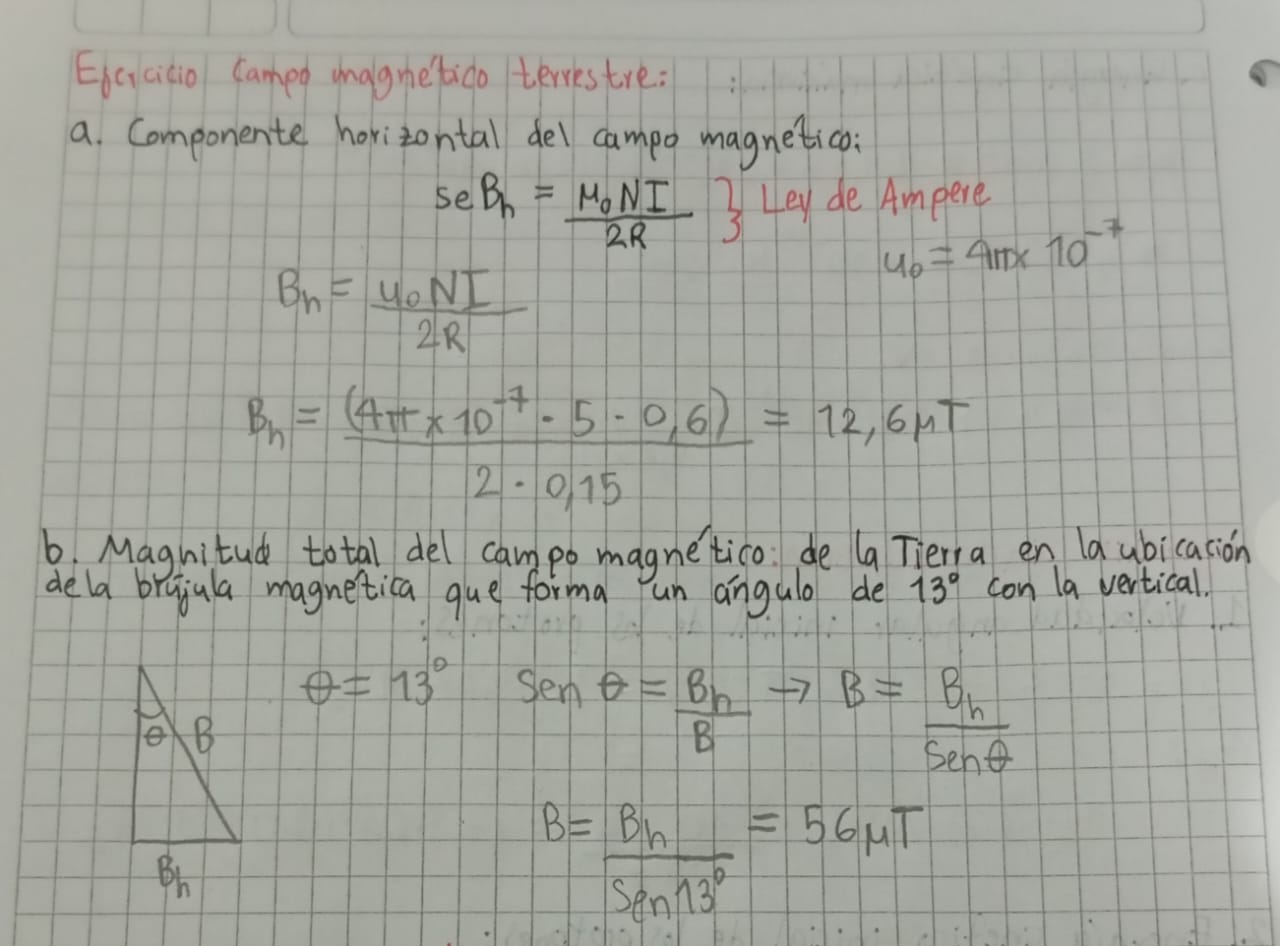 Ejercicio Campo magnético terrestre:
a. Componente horizontal del campo magnético:
se Bh = μ0NI / 2R } Ley de Ampere
u0 = 4π x 10^-7
Bh = u0NI / 2R
Bh = (4π x 10^-7 · 5 · 0,6) / 2 · 0,15 = 12,6 μT
b. Magnitud total del campo magnético: de la Tierra en la ubicación
de la brújula magnética que forma un ángulo de 13° con la vertical.
θ = 13° Sen θ = Bh / B → B = Bh / Sen θ
θ B
B = Bh / Sen 13° = 56 μT
Bh